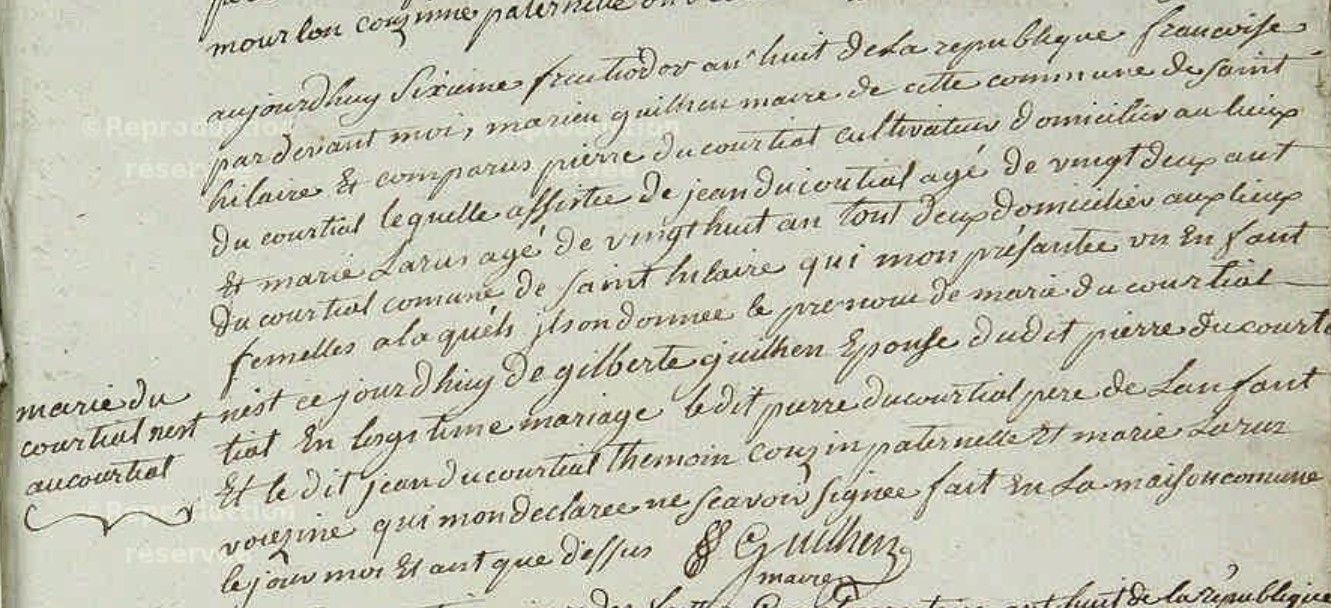 mourlon couzinne paternelle
aujourdhuy Sixieme fructidor an huit de La republique francoise
pardevant mois marien guilhen maire de cette commune de Saint
hilaire Et comparus pierre ducourtial cultivateur domicilier au lieux
du courtial lequelle assistee de jean ducourtial agé de vingt deux ant
Et marie Larus agé de vingt huit an tout deux domicilier aux lieux
du courtial comune de saint hilaire qui mon présantee un Enfant
femelles a laquels ils on donnee le prenom de marie du courtial
marie du
courtial nest
au courtial
nést ce jourdhuy de gilberte guilhen Epouse dudit pierre ducourt
tial En legitime mariage le dit pierre ducourtial pere de Lanfant
Et le dit jean ducourtial themoin couzin paternelle Et marie Larus
voiezine qui mon declaree ne scavoir signee fait En La maison comune
le jour moi Et ant que dessus Guilhen
maire
huit de la république
© Reproduction
réservée
Reproduction
réservée